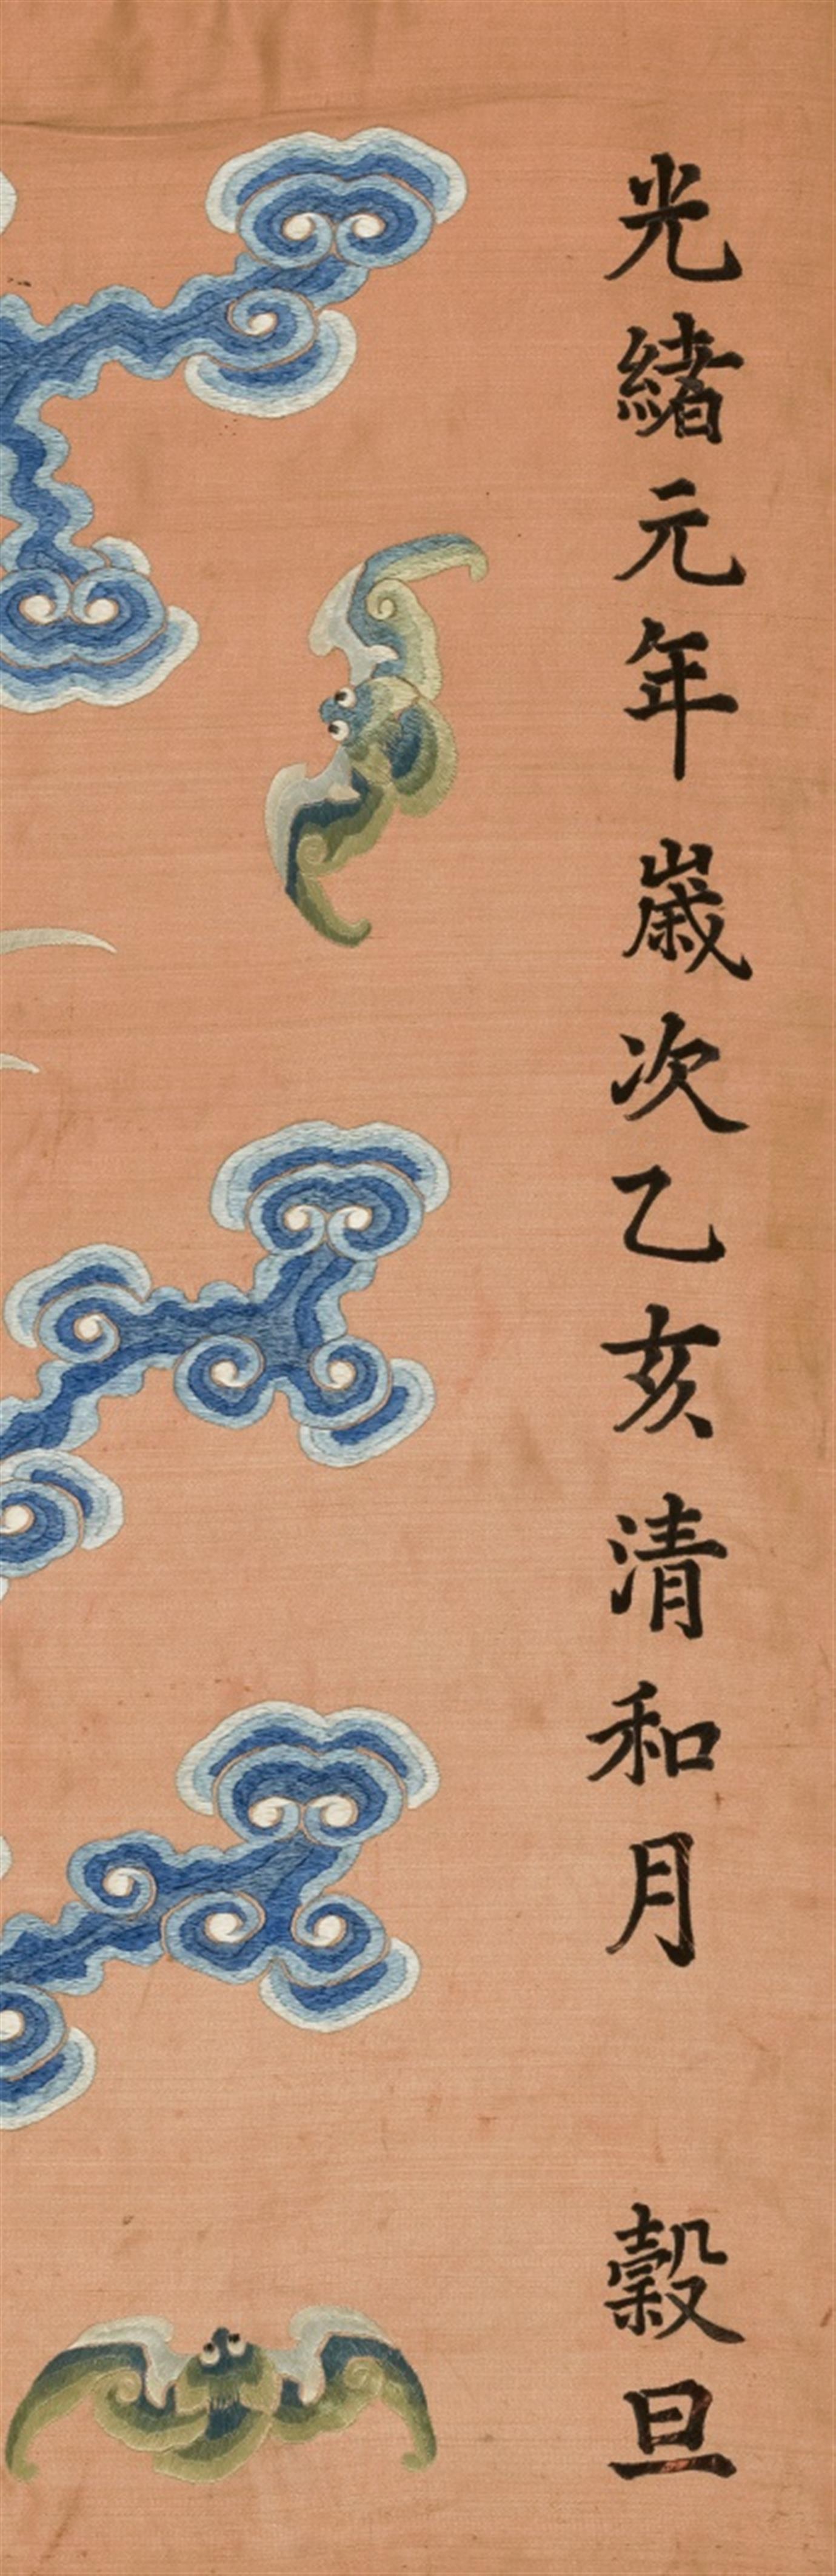 光緒元年歲次乙亥清和月穀旦